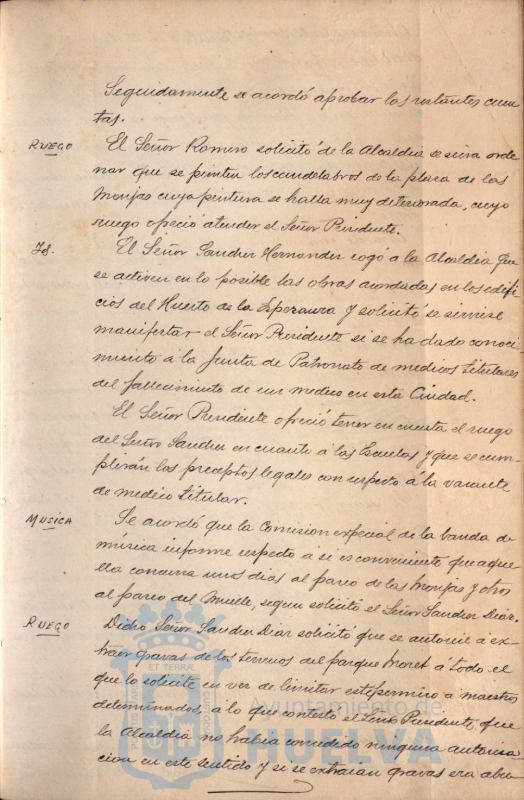 Seguidamente se acordó aprobar las restantes cuen
tas.
RUEGO
El Señor Romero solicitó de la Alcaldia se sirva orde
nar que se pinten los candelabros de la plaza de las
Monjas cuya pintura se halla muy deteriorada, cuyo
ruego ofreció atender el Señor Presidente.
Id.
El Señor Sanchez Hernandez rogó á la Alcaldia que
se activen en lo posible las obras acordadas en los edifi
cios del Huerto de la Esperanza y solicitó se sirviese
manifestar el Señor Presidente si se ha dado conoci
miento á la Junta de Patronato de medicos titulares
del fallecimiento de un medico en esta Ciudad.
El Señor Presidente ofreció tener en cuenta el ruego
del Señor Sanchez en cuanto á las Escuelas y que se cum
plirán los preceptos legales con respecto á la vacante
de medico titular.
MUSICA
Se acordó que la Comision especial de la banda de
música informe respecto á si es conveniente que aque
lla concurra unos dias al paseo de las Monjas y otros
al paseo del Muelle, segun solicitó el Señor Sanchez Diaz.
RUEGO
Dicho Señor Sanchez Diaz solicitó que se autorice á ex
traer gravas de los terrenos del parque Moret á todo el
que lo solicite en vez de limitar este permiso a maestros
determinados, a lo que contestó el Señor Presidente, que
la Alcaldia no habia concedido ninguna autoriza
cion en este sentido y si se extraian gravas era abu
Ayuntamiento de
HUELVA